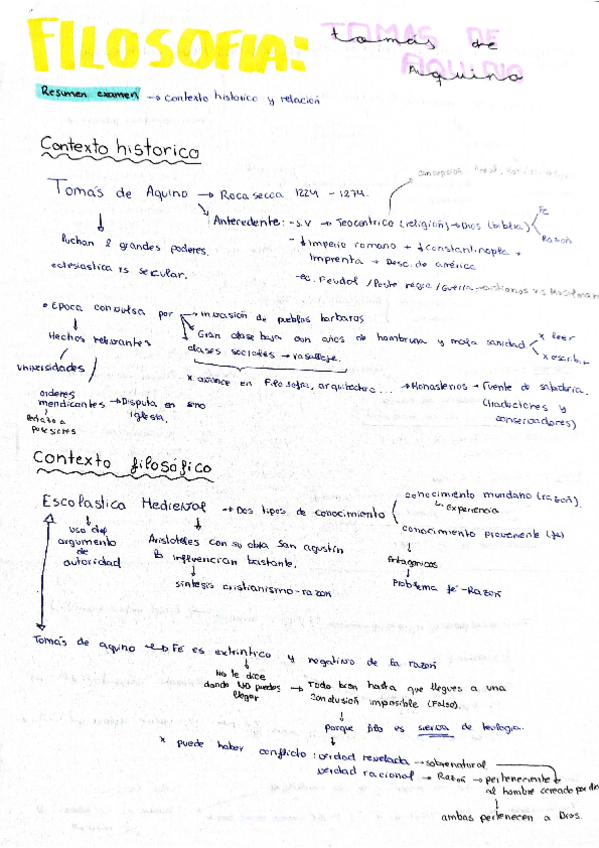 FILOSOFIA: TOMAS DE AQUINO
tomás de Aquino
Resumen examen → contexto historico y relación
Contexto historico
Tomás de Aquino → Rocasecca 1224 - 1274.
Luchan 2 grandes poderes.
eclesiastica vs secular.
Antecedente: - S.V → Teocentrico (religión) → Dios (biblia)
Fe
Razón
- ↓ Imperio romano + ↓ Constantinopla +
Imprenta → Desc. de américa
- ec. Feudal / Peste negra / Guerra
• Época convulsa por → invasión de pueblos barbaros
Gran clase baja con años de hambruna y mala sanidad
x leer
x escribir
clases sociales → vasallaje.
Hechos relevantes
universidades
ordenes
mendicantes → Disputa en seno
iglesia.
x avance en Filosofia, arquitectura... → Monasterios → Fuente de sabiduria.
(traductores y
conservadores)
Contexto filosófico
Escolastica Medieval → Dos tipos de conocimiento
conocimiento mundano (razón).
↳ Experiencia
conocimiento proveniente (fe)
Antagonicos
Problema fe - Razón
uso del
argumento
de
autoridad
Aristoteles con su obra San agustín
influencian bastante.
sintesis cristianismo - razón
Tomás de aquino → Fe es extrintico y negativo de la razón
No le dice
donde NO puedes
llegar
→ Todo bien hasta que llegues a una
conclusión imposible (Falso).
porque filo es sierva de teologia.
x puede haber conflicto: verdad revelada → sobrenatural
verdad racional → Razón → perteneciente
al hombre creado por
ambas pertenecen a Dios.